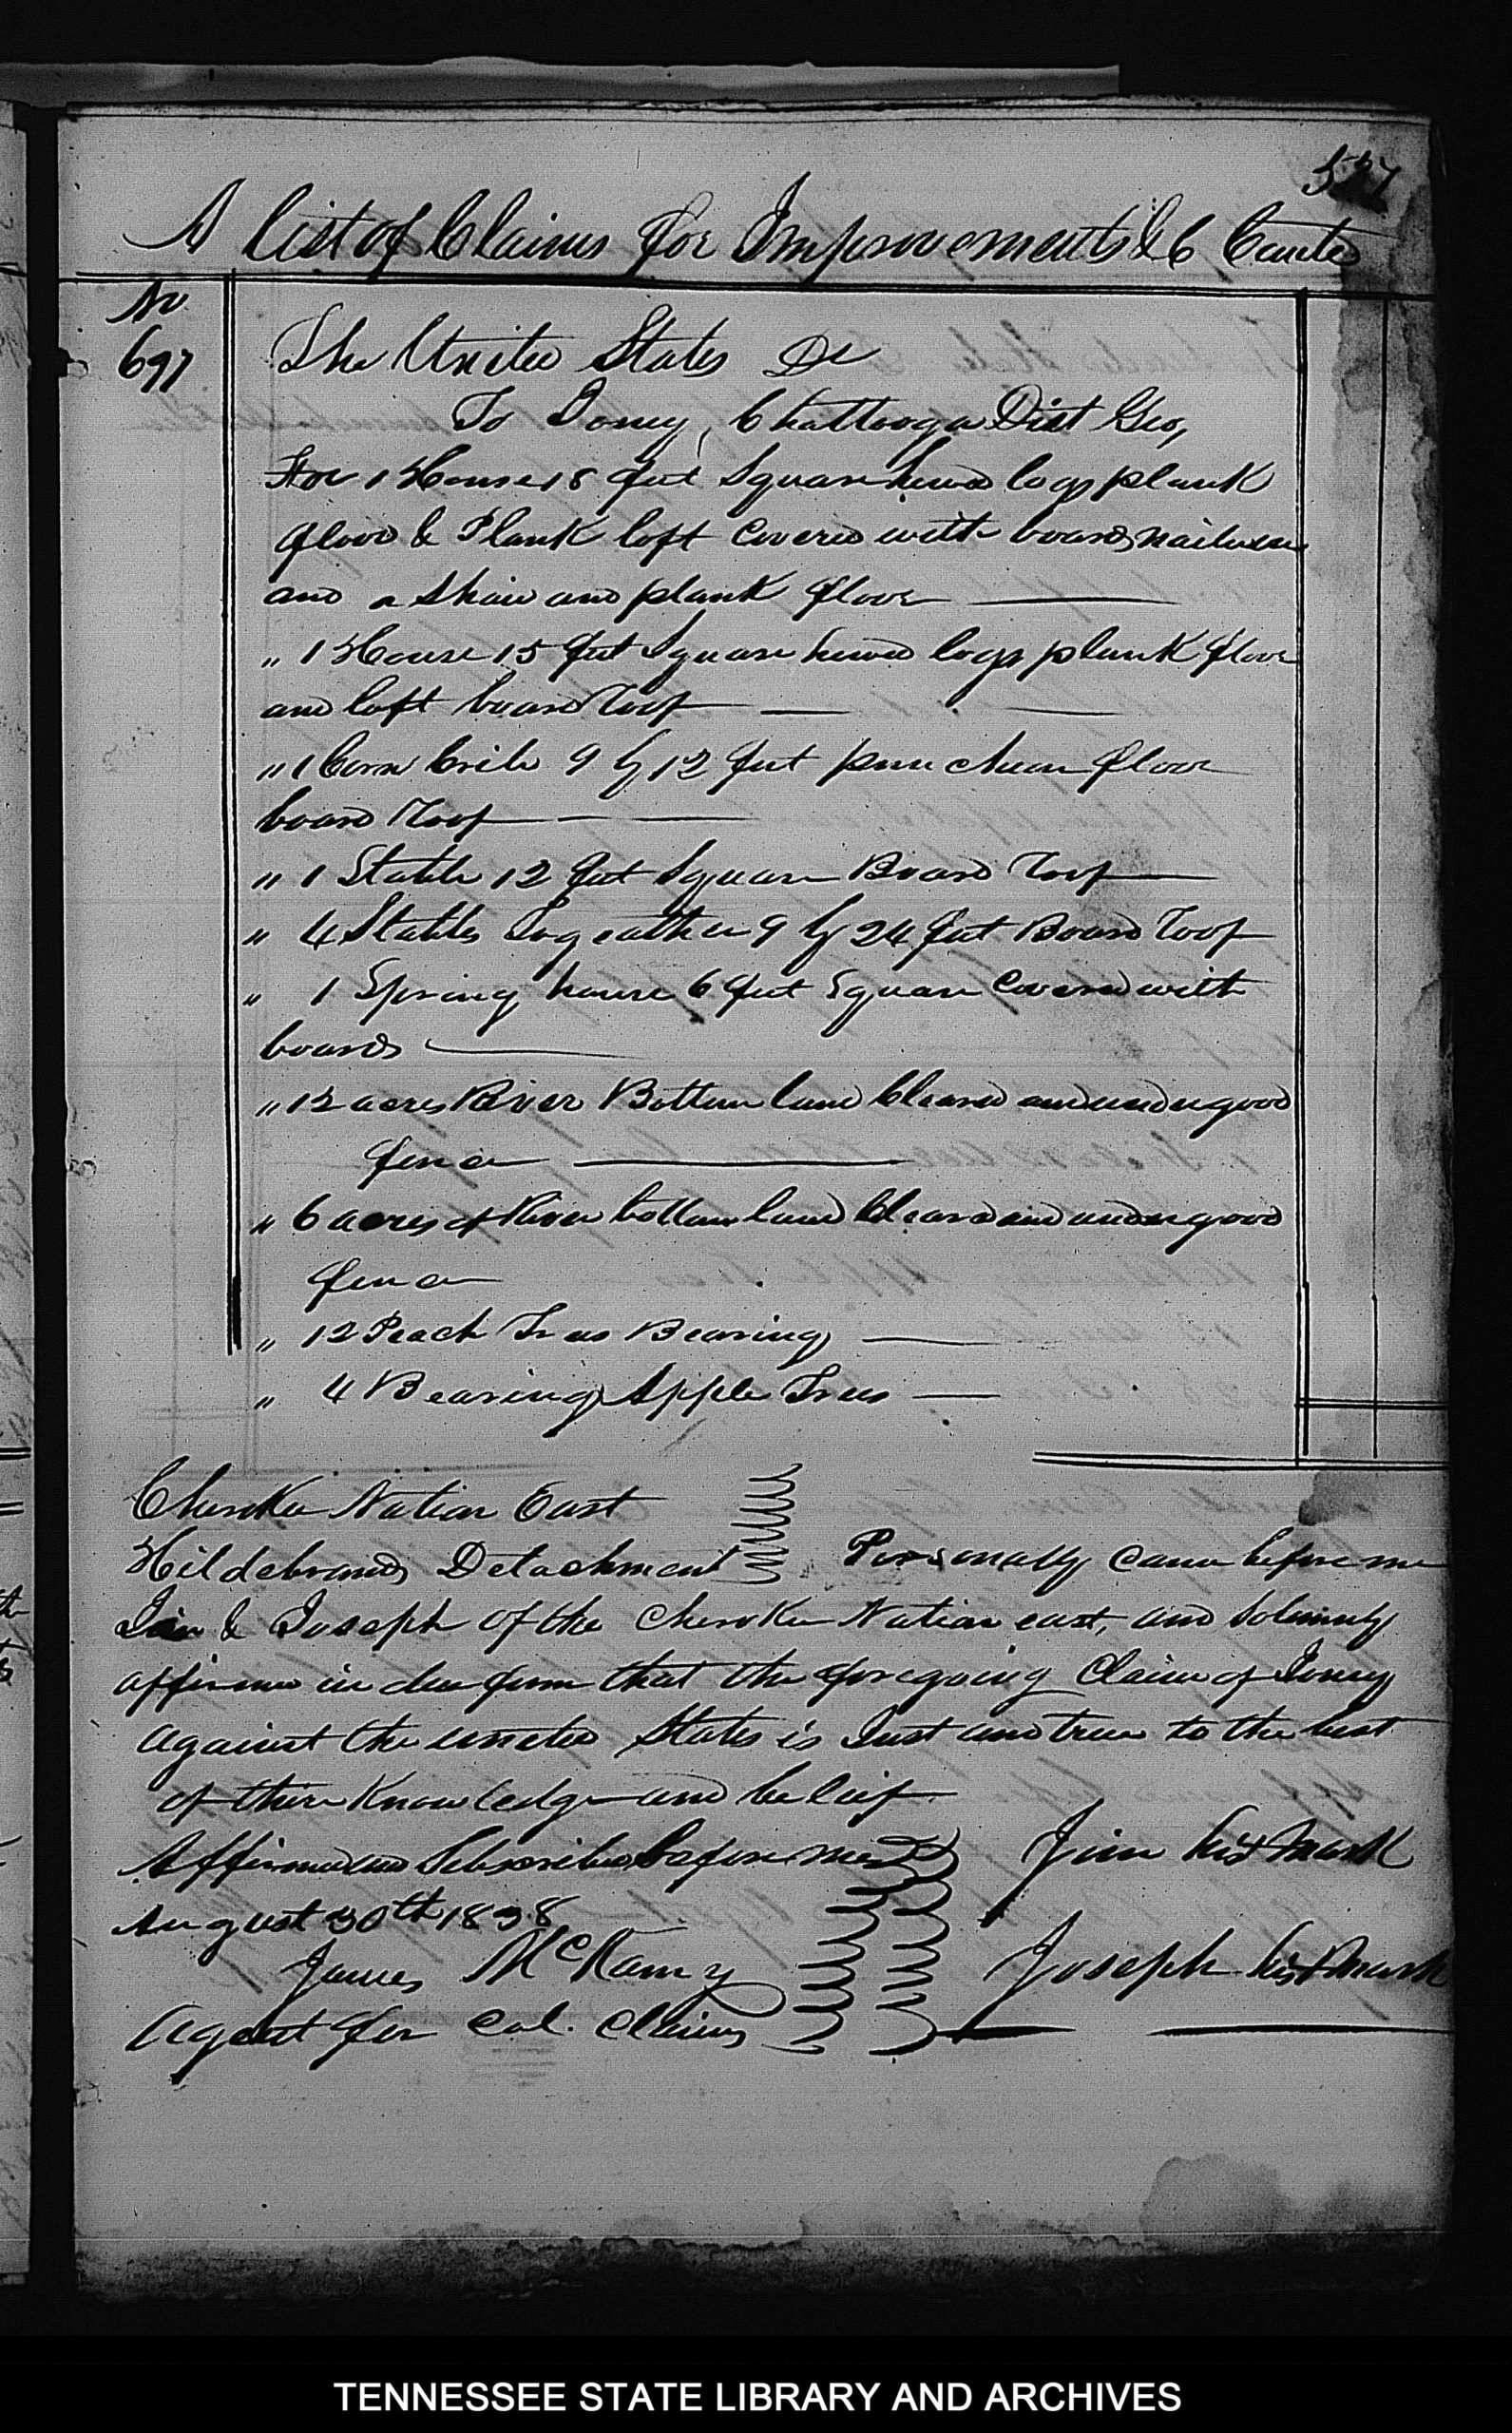 537
A list of Claims for Improvements &c Contd
No
697
The United States Dr
To Toney, Chattooga Dist Geo,
For 1 House 18 feet Square hewd logs plank
floor & Plank loft Covered with boards nailed on
and a Shed and plank floor
" 1 House 15 feet Square hewd logs plank floor
and loft board Roof
" 1 Corn Crib 9 by 12 feet puncheon floor
board Roof
" 1 Stable 12 feet Square Board Roof
" 4 Stables Togeather 9 by 24 feet Board Roof
" 1 Spring house 6 feet Square Covered with
boards
" 12 acres River Bottom land Cleared and under good
fence
" 6 acres of River bottom land Cleared and under good
fence
" 12 Peach Trees Bearing
" 4 Bearing Apple Trees
Cherokee Nation East
Hildebrands Detachment Personally came before me
Jim & Joseph of the Cherokee Nation east, and Solemnly
affirmed in due form that the foregoing Claim of Toney
against the united States is Just and true to the best
of thire Knowledge and beleif
Affirmed and Subscribed before me
August 30th 1838
Jim his x mark
James McKamy
Joseph his x mark
Agent for Col. Claims
TENNESSEE STATE LIBRARY AND ARCHIVES